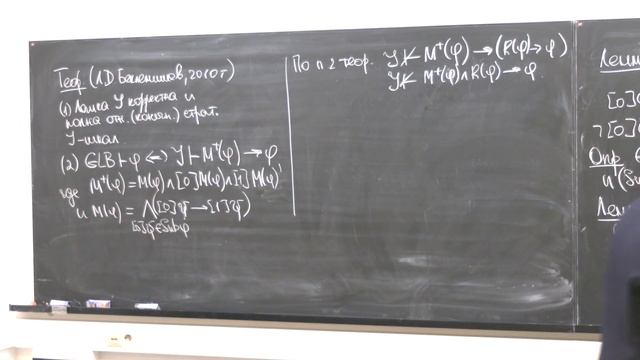 Теор. (Л Д Беклемишев, 2010 г)
(1) Логика J корректна и
полна отн. (конечн.) страт.
J-шкал
(2) GLB ⊢ φ ⟺ J ⊢ M⁺(φ) → φ
где M⁺(φ) = M(φ) ∧ [0]M(φ) ∧ [1]M(φ)
и M(φ) = ⋀([0]ψ → [1]ψ)
[0]ψ ∈ Sub φ
По п 2 теор. J ⊬ M⁺(φ) → (R(φ) → φ)
J ⊬ M⁺(φ) ∧ R(φ) → φ
Лемм
[0]
¬[0]
Опр
Лем